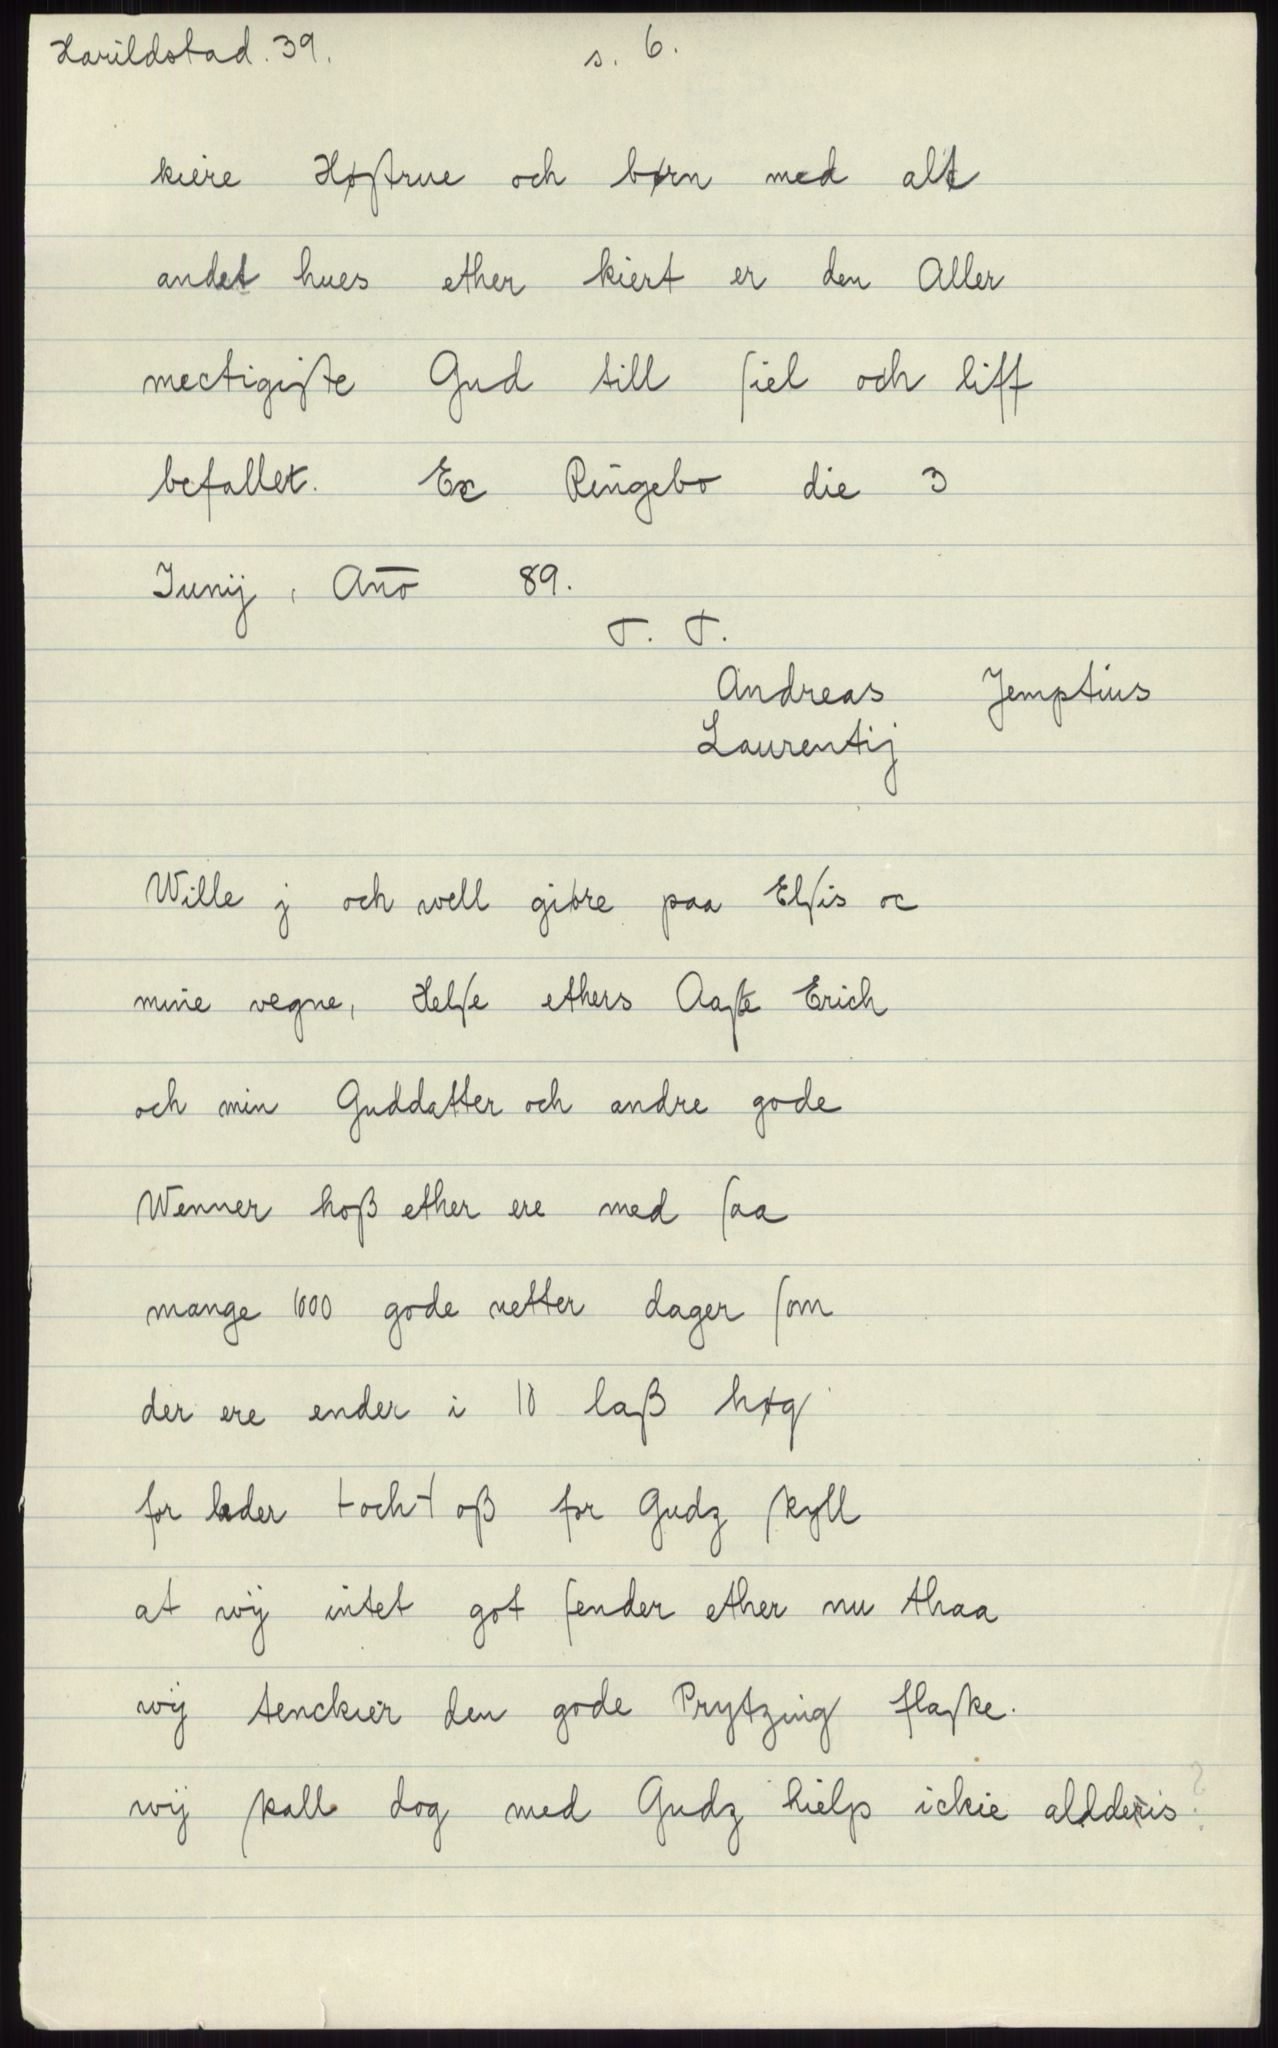 Harildstad. 39. s. 6.
kiere Høſtrue och børn med alt
andet hues ether kiert er den Aller
mectigiſte Gud till ſiel och liff
befallet. Ex Ringebo die 3
Junij, Ano̅ 89.
T. T.
Andreas Jemptius
Laurentij
Wille j och well giøre paa Elſis oc
mine vegne, Helſe ethers Aaſte Erich
och min Guddatter och andre gode
Wenner hoß ether ere med ſaa
mange 1000 gode netter dager ſom
der ere ender i 10 laß høg
for lader ⊢och⊣ oß for Gudz ſkyll
at wij intet got ſender ether nu thaa
wij tenckier den gode Prytzing flaſke.
wij ſkall dog med Gudz hielp ickie allderis ?